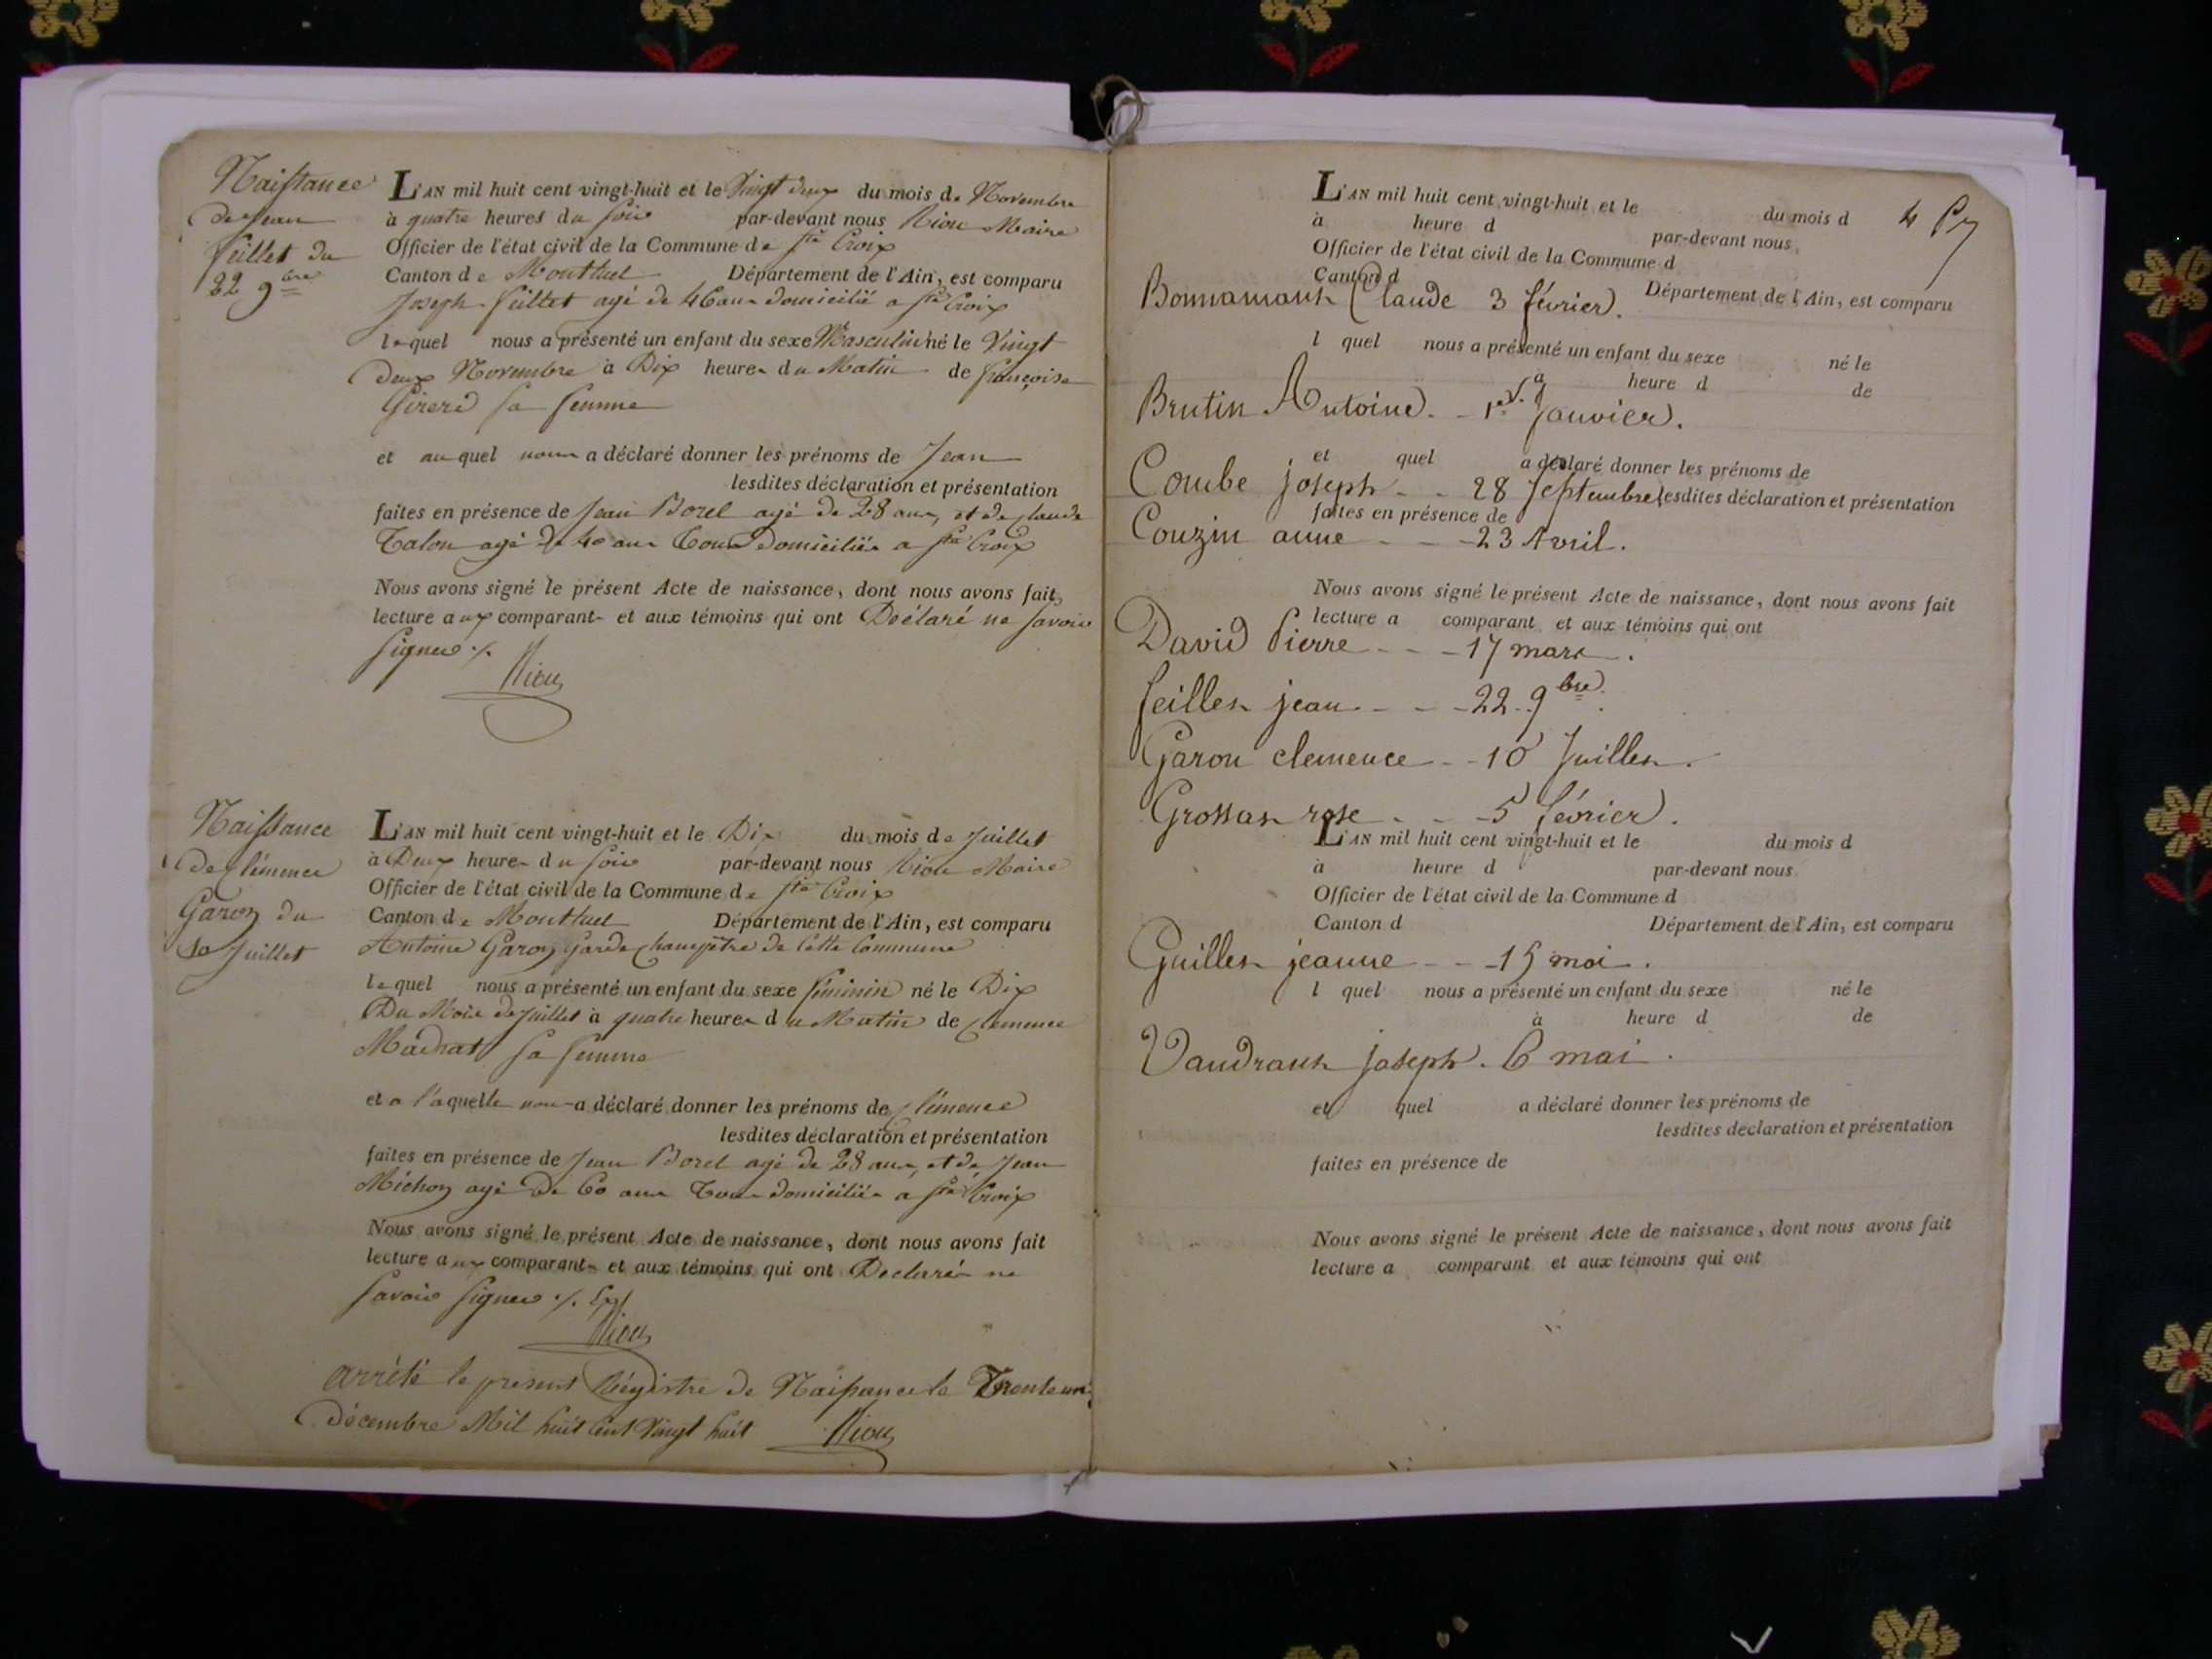 Naissance
de Jean
feillet du
22 9bre
L'AN mil huit cent vingt-huit et le Vingt deux du mois de Novembre
à quatre heures du soir par-devant nous Riou Maire
Officier de l'état civil de la Commune de Ste Croix
Canton de Montluel Département de l'Ain, est comparu
Joseph feillet agé de 46 ans domicilié a Ste Croix
lequel nous a présenté un enfant du sexe Masculin né le Vingt
deux Novembre à Dix heures du Matin de françoise
Girerd sa femme
et au quel nous a déclaré donner les prénoms de Jean
lesdites déclaration et présentation
faites en présence de Jean Borel agé de 28 ans, et de Claude
Talon agé de 40 ans Tous domiciliés a Ste Croix
Nous avons signé le présent Acte de naissance, dont nous avons fait
lecture aux comparants et aux témoins qui ont Déclaré ne savoir
signer ./.
Riou
Naissance
de Clémence
Garon du
10 Juillet
L'AN mil huit cent vingt-huit et le Dix du mois de Juillet
à Deux heures du soir par-devant nous Riou Maire
Officier de l'état civil de la Commune de Ste Croix
Canton de Montluel Département de l'Ain, est comparu
Antoine Garon Garde Champêtre de Cette Commune
lequel nous a présenté un enfant du sexe féminin né le Dix
Du Mois de Juillet à quatre heures du Matin de Clemence
sa femme
et a laquelle nous a déclaré donner les prénoms de Clémence
lesdites déclaration et présentation
faites en présence de Jean Borel agé de 28 ans, et de Jean
Michon agé De 60 ans Tous domiciliés a Ste Croix
Nous avons signé le présent Acte de naissance, dont nous avons fait
lecture aux comparants et aux témoins qui ont Declarés ne
savoir signer ./.
Riou
arrêté le present Régistre de Naissance le Trente un
décembre Mil huit Cent Vingt huit Riou
L'AN mil huit cent vingt-huit et le du mois d
à heure d par-devant nous
Officier de l'état civil de la Commune d
Canton d Département de l'Ain, est comparu
Bonnamant Claude 3 février.
l quel nous a présenté un enfant du sexe né le
à heure d de
Brutin Antoine. - 1er Janvier.
et quel a déclaré donner les prénoms de
Combe joseph - - 28 Septembre lesdites déclaration et présentation
faites en présence de
Couzin anne - - - 23 Avril.
Nous avons signé le présent Acte de naissance, dont nous avons fait
lecture a comparant et aux témoins qui ont
David Pierre - - - 17 mars.
feillet jean - - - 22 9bre.
Garon clemence - - 10 Juillet.
Grossat rose - - - 5 février.
L'AN mil huit cent vingt-huit et le du mois d
à heure d par-devant nous
Officier de l'état civil de la Commune d
Canton d Département de l'Ain, est comparu
Guillet jeanne - - - 15 mai.
l quel nous a présenté un enfant du sexe né le
à heure d de
Vaudrant joseph. 6 mai.
et quel a déclaré donner les prénoms de
lesdites déclaration et présentation
faites en présence de
Nous avons signé le présent Acte de naissance, dont nous avons fait
lecture a comparant et aux témoins qui ont